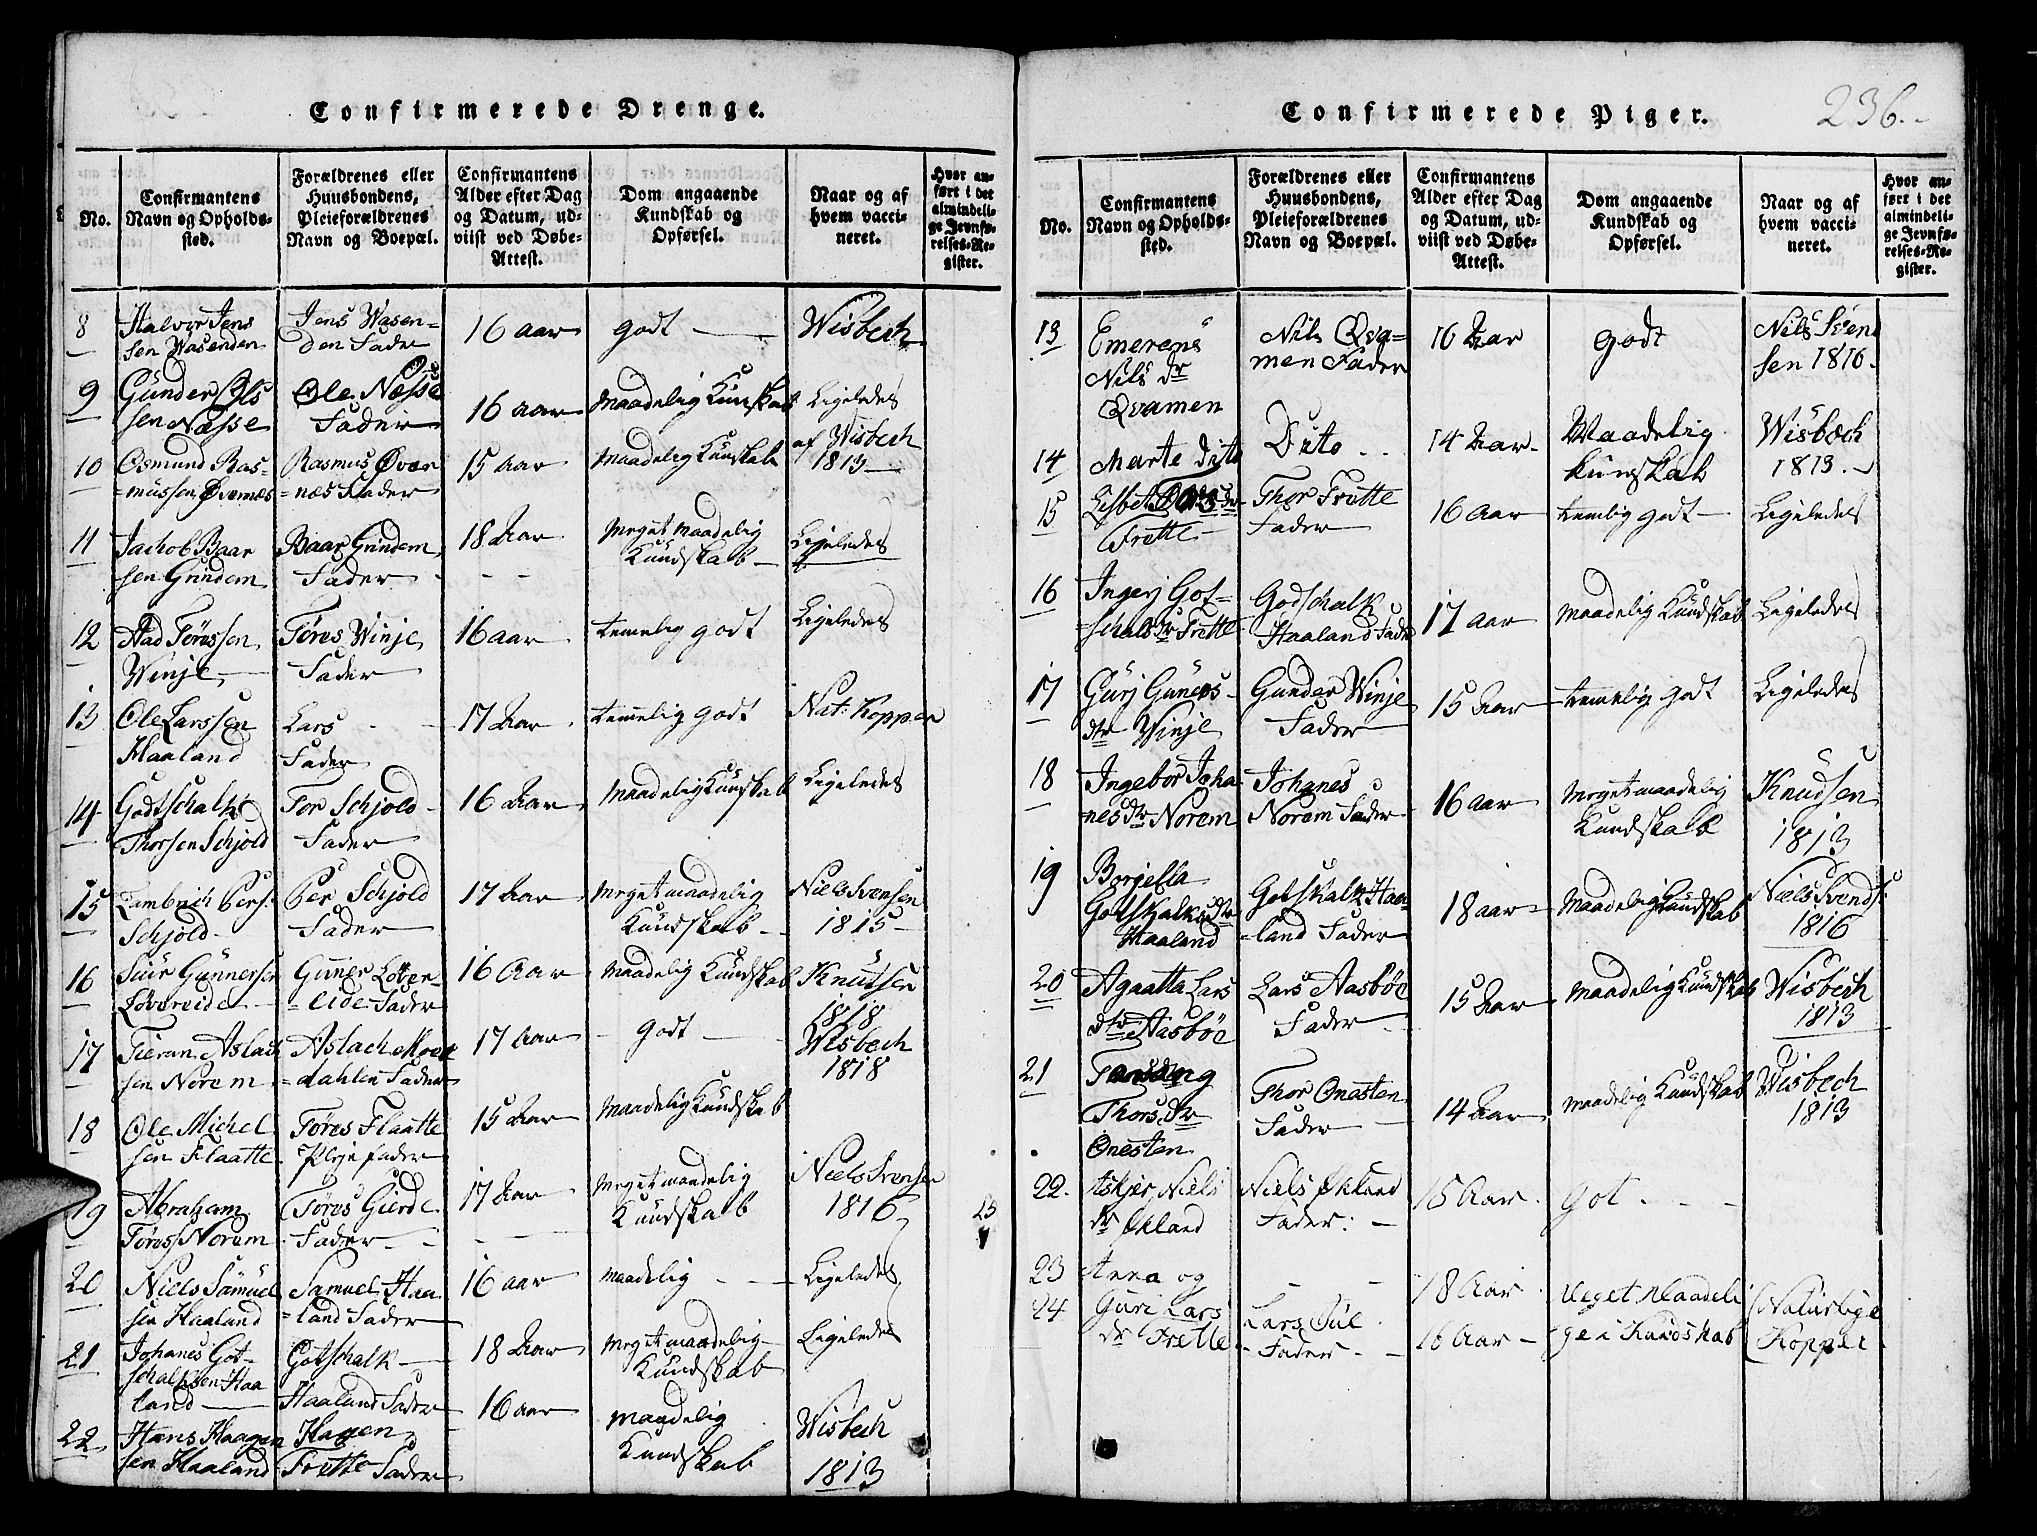 Confirmerede Drenge.
No.
Confirmantens
Navn og Opholds-
sted.
Forældrenes eller
Huusbondens,
Pleieforældrenes
Navn og Boepæl.
Confirmantens
Alder efter Dag
og Datum, ud-
viist ved Døbe-
Attest.
Dom angaaende
Kundskab og
Opførsel.
Naar og af
hvem vacci-
neret.
Hvor an-
ført i det
almindeli-
ge Jevnfø-
relses-Re-
gister.
8 Halvor Jens
sen Wasenden
Jens Wasen=
den Fader
16 aar
godt
Wisbech
9 Gunder Ols
sen Næsse
Ole Næsse
Fader
16 aar
Maadelig Kunskab
Ligeledes
10 Osmund Ras=
=mussen Øvernæs
Rasmus Øver
=næs Fader
15 aar
Maadelig Kunskab
af Wisbech
1813
11 Jachob Baar
sen Grindem
Baar Grindem
Fader
18 Aar
Meget maadelig
Kundskab
Ligeledes
12 Aad Tøressen
Winje
Tøres Winje
Fader
16 aar
temelig godt
Ligeledes
13 Ole Larssen
Haaland
Lars
Fader
17 Aar
temmelig godt
Nat: Kopper
14 Godtschalk
Thorsen Schjold
Tor Schjold
Fader
16 Aar
Maadelig Kunskab
Ligeledes
15 Lambrich Pers:
Schjold
Per Schjold
Fader
17 Aar
Meget maadelig
Kundskab
Niels Svensen
1815
16 Siur Gunnersen
Løvereide
Guner Løver=
=eide Fader
16 Aar
Maadelig Kundskab
Knutsen
1818
17 Aslach
sen Norem
Aslach
=dahlen Fader
17 Aar
Godt
Wisbech
1818
18 Ole Michel
sen Flaatte
Tøres Flaatte
Pleje fader
15 Aar
Maadelig Kundskab
19 Abraham
Tøress Norem
Tøres Gierde
Fader
17 Aar
Meget maadelig
Kundskab
Niels Svensen
1816
20 Niels Samuel
sen Haaland
Samuel Haa
=land Fader
16 aar
maadelig
Ligeledes
21 Johanes Got=
schalksen Haa
land
Gotschalk
Haaland Fader
18 Aar
Meget maadelig
Kundskab
Ligeledes
22 Hans Haagen
sen Haaland
Hagen
Frette Fader
16 aar
maadelig
Kundskab
Wisbech
1813
236.
Confirmerede Piger.
No.
Confirmantens
Navn og Opholds-
sted.
Forældrenes eller
Huusbondens,
Pleieforældrenes
Navn og Boepæl.
Confirmantens
Alder efter Dag
og Datum, ud-
viist ved Døbe-
Attest.
Dom angaaende
Kundskab og
Opførsel.
Naar og af
hvem vacci-
neret.
Hvor an-
ført i det
almindeli-
ge Jevnfø-
relses-Re-
gister.
13 Emerens
Nils dr
Qvamen
Nils Qva=
men Fader
16 Aar
godt
Nils Svend
sen 1816.
14 Marte dito
Dito
14 Aar
Maadelig
kunskab
Wisbech
1813.
15 Lisbet Thorsdr
Frette
Thor Frette
Fader
16 Aar
temlig godt
Ligeledes
16 Ingerj Got=
schalsdr Frette
Godschalk
Haaland Fader
17 aar
Maadelig Kundskab
Ligeledes
17 Gurj Guners
dtr Winje
Gunder Winje
Fader
15 Aar
temmelig godt
Ligeledes
18 Ingebor Joha
nesdtr Norem
Johanes
Norem Fader
16 aar
Meget maadelig
Kundskab
Knudsen
1813
19 Borjella
Gotskalksdtr
Haaland
Gotskalk Haa=
=land Fader
18 aar
Maadelig Kundskab
Niels Svends:
1816
20 Agaatta Lars
dtr Aasbøe
Lars Aasbøe
Fader
15 Aar
Maadelig Kundskab
Wisbech
1813
21
Thorsdr
Onesten
Thor Onesten
Fader
14 Aar
maadelig Kundskab
Wisbech
1813
22. Askjer Niels
dr Økland
Niels Økland
Fader:
15 Aar
Got
23 Anna og
24 Guri Lars
dr Frette
Lars
Fader
18 Aar
16 Aar
Meget Maadeli
ge i Kundskab
Naturlige
Kopper